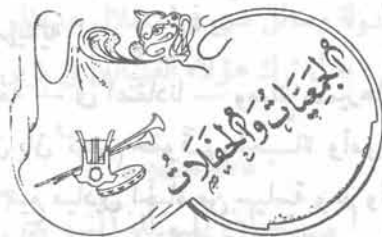 الجَمْعِيَّاتُ وَالْحَفَلَاتُ